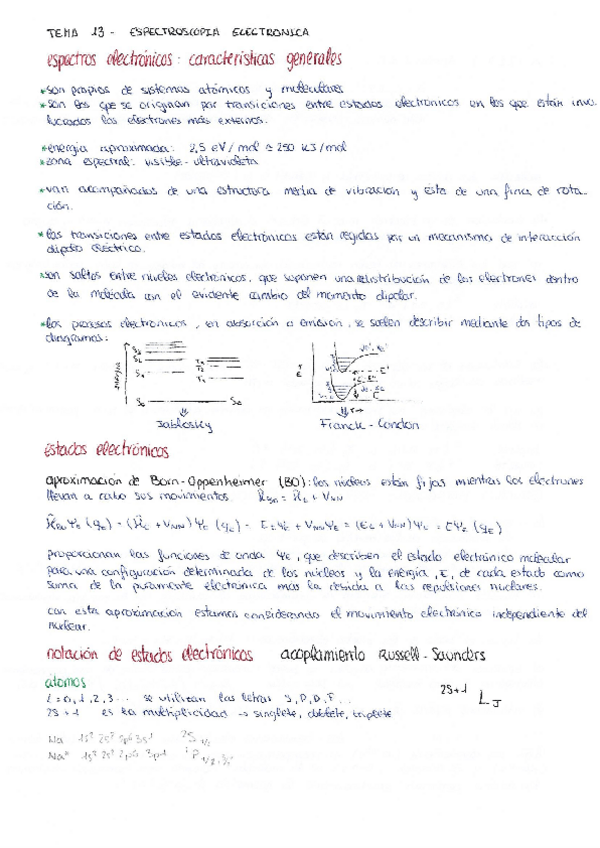 TEMA 13 - ESPECTROSCOPIA ELECTRONICA
espectros electrónicos: características generales
*son propios de sistemas atómicos y moleculares
*son los que se originan por transiciones entre estados electrónicos en los que están invo-
lucrados los electrones más externos.
*energía aproximada: 2,5 eV/mol ≈ 250 kJ/mol
*zona espectral: visible-ultravioleta
*van acompañados de una estructura media de vibración y esta de una fina de rota-
ción.
*las transiciones entre estados electrónicos están regidas por un mecanismo de interacción
dipolo eléctrico.
*son saltos entre niveles electrónicos, que suponen una redistribución de los electrones dentro
de la molécula con el evidente cambio del momento dipolar.
*los procesos electrónicos, en absorción o emisión, se suelen describir mediante dos tipos de
diagramas:
energía
S₁
S₀ S₀
E
r→
Jablosky Franck-Condon
estados electrónicos
aproximación de Born-Oppenheimer (BO): los núcleos están fijos mientras los electrones
llevan a cabo sus movimientos.
proporcionan las funciones de onda Ψε, que describen el estado electrónico molecular
para una configuración determinada de los núcleos y la energía, E, de cada estado como
suma de la puramente electrónica más la debida a las repulsiones nucleares.
con esta aproximación estamos considerando el movimiento electrónico independiente del
nuclear.
notación de estados electrónicos acoplamiento Russell-Saunders
átomos
L=0,1,2,3... se utilizan las letras S,P,D,F...
2S+1 es la multiplicidad → singlete, doblete, triplete
2S+1 L J
Na 1s² 2s² 2p⁶ 3s¹ ²S 1/2
Na* 1s² 2s² 2p⁶ 3p¹